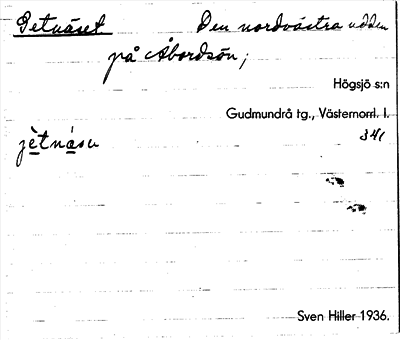 Getnäset Den nordvästra udden
på Åbordsön;
Högsjö s:n
Gudmundrå tg., Västernorrl. l.
341
jètnásu
Sven Hiller 1936.